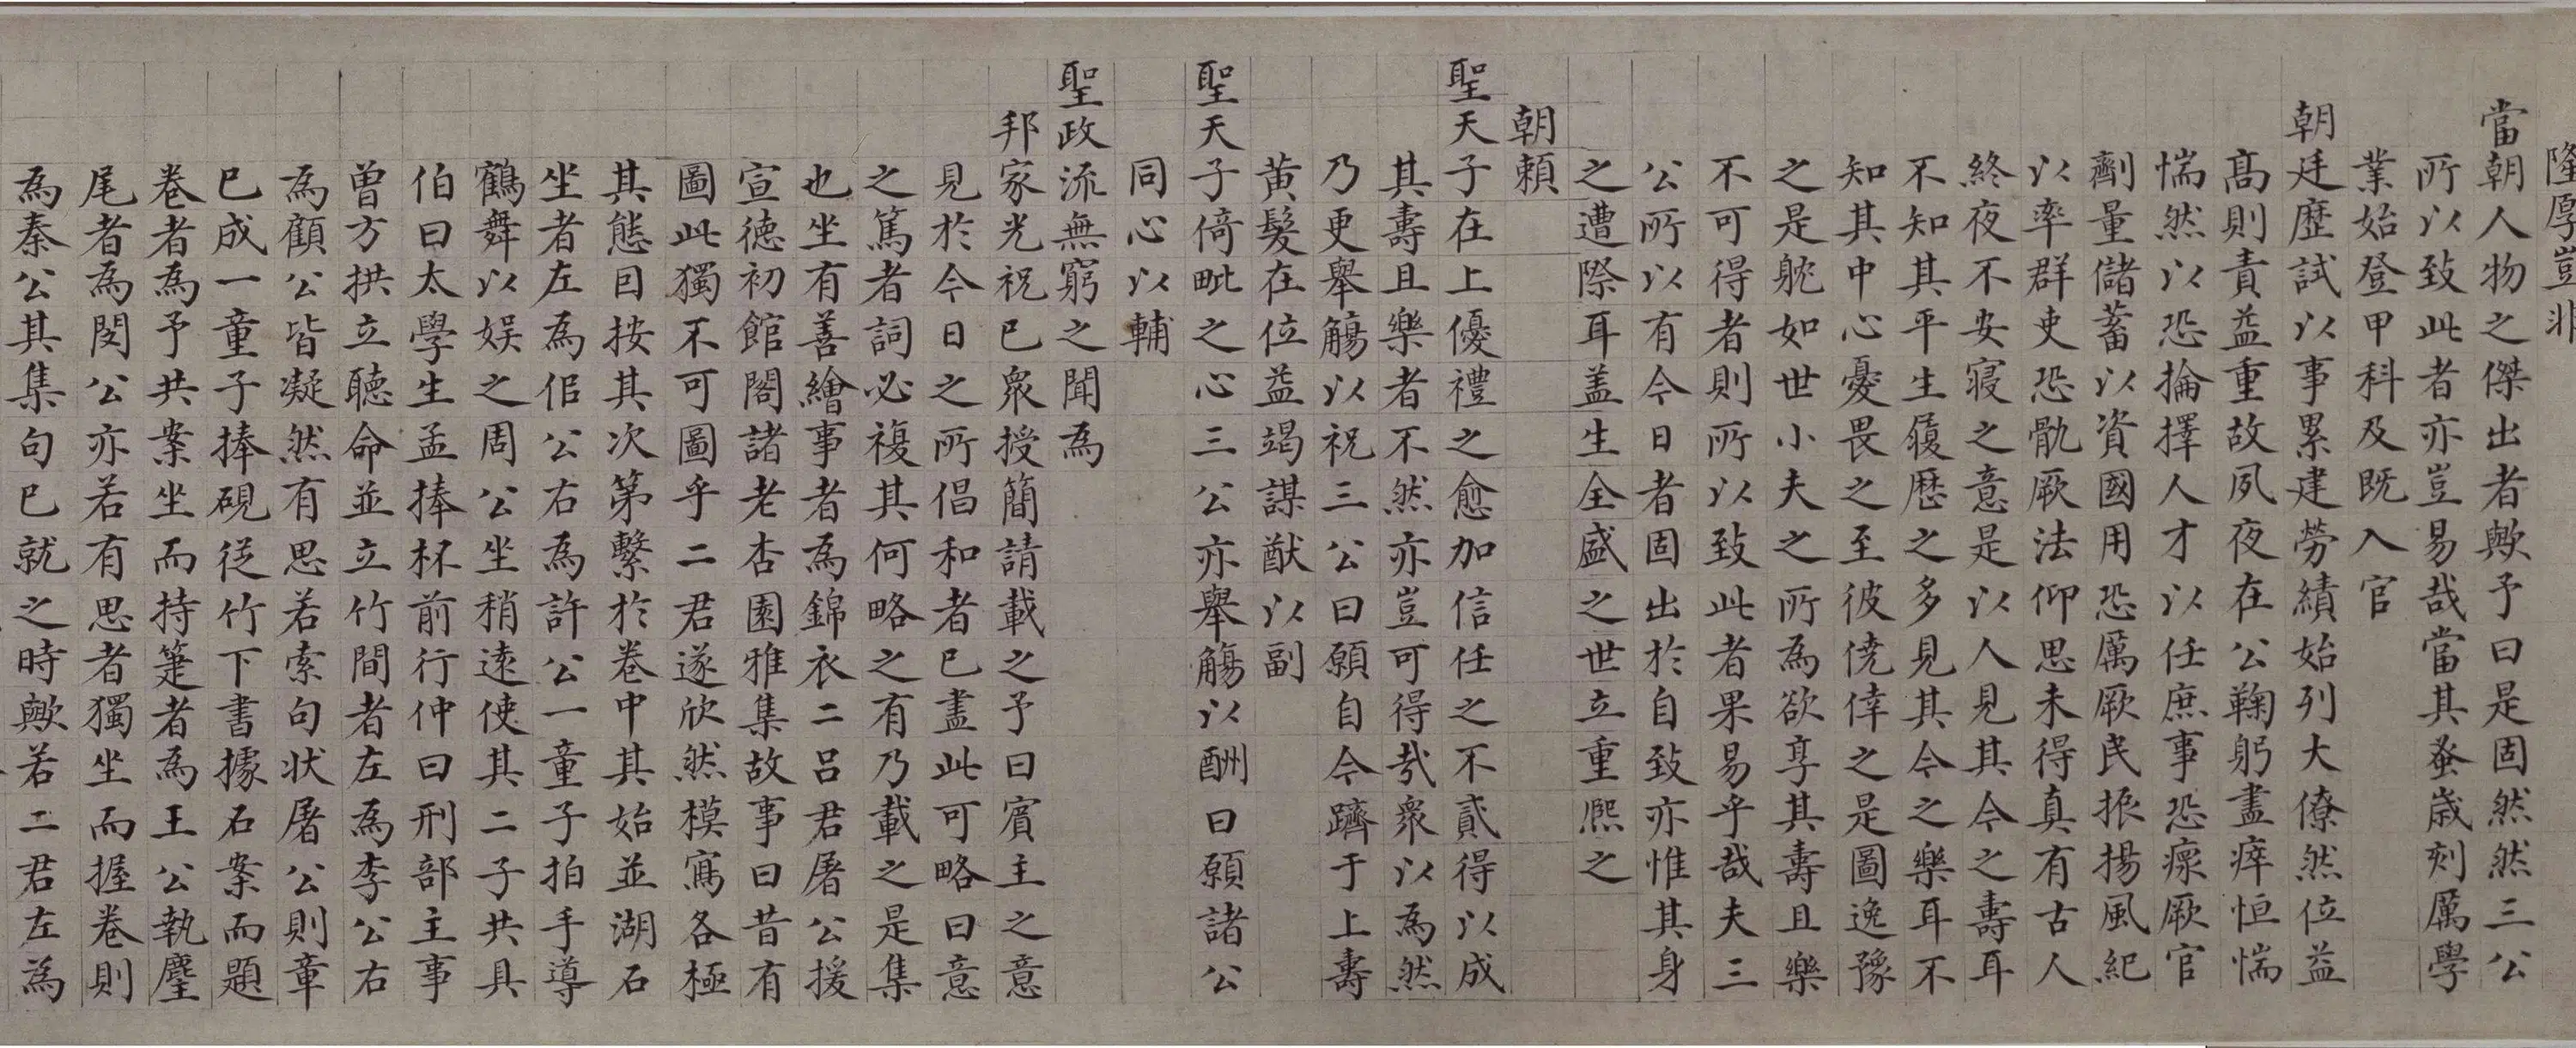 隆厚豈非
當朝人物之傑出者歟予曰是固然然三公
所以致此者亦豈易哉當其蚤歲刻厲學
業始登甲科及既入官
朝廷歷試以事累建勞績始列大僚然位益
高則責益重故夙夜在公鞠躬盡瘁恒惴
惴然以恐掄擇人才以任庶事恐瘝厥官
劑量儲蓄以資國用恐厲厥民振揚風紀
以率群吏恐骫厥法仰思未得真有古人
終夜不安寢之意是以人見其今之壽耳
不知其平生履歷之多見其今之樂耳不
知其中心憂畏之至彼僥倖之是圖逸豫
之是躭如世小夫之所為欲享其壽且樂
不可得者則所以致此者果易乎哉夫三
公所以有今日者固出於自致亦惟其身
之遭際耳蓋生全盛之世立重熙之
朝賴
聖天子在上優禮之愈加信任之不貳得以成
其壽且樂者不然亦豈可得哉衆以為然
乃更舉觴以祝三公曰願自今躋于上壽
黃髮在位益竭謀猷以副
聖天子倚毗之心三公亦舉觴以酬曰願諸公
同心以輔
聖政流無窮之聞為
邦家光祝已衆授簡請載之予曰賓主之意
見於今日之所倡和者已盡此可略曰意
之篤者詞必複其何略之有乃載之是集
也坐有善繪事者為錦衣二呂君屠公援
宣德初館閣諸老杏園雅集故事曰昔有
圖此獨不可圖乎二君遂欣然模寫各極
其態目按其次第繫於卷中其始並湖石
坐者左為佀公右為許公一童子拍手導
鶴舞以娛之周公坐稍遠使其二子共具
伯曰太學生孟捧杯前行仲曰刑部主事
曾方拱立聽命並立竹間者左為李公右
為顧公皆凝然有思若索句状屠公則章
已成一童子捧硯從竹下書據石案而題
卷者為予共案坐而持箑者為王公執麈
尾者為閔公亦若有思者獨坐而握卷則
為秦公其集句已就之時歟若二君左為